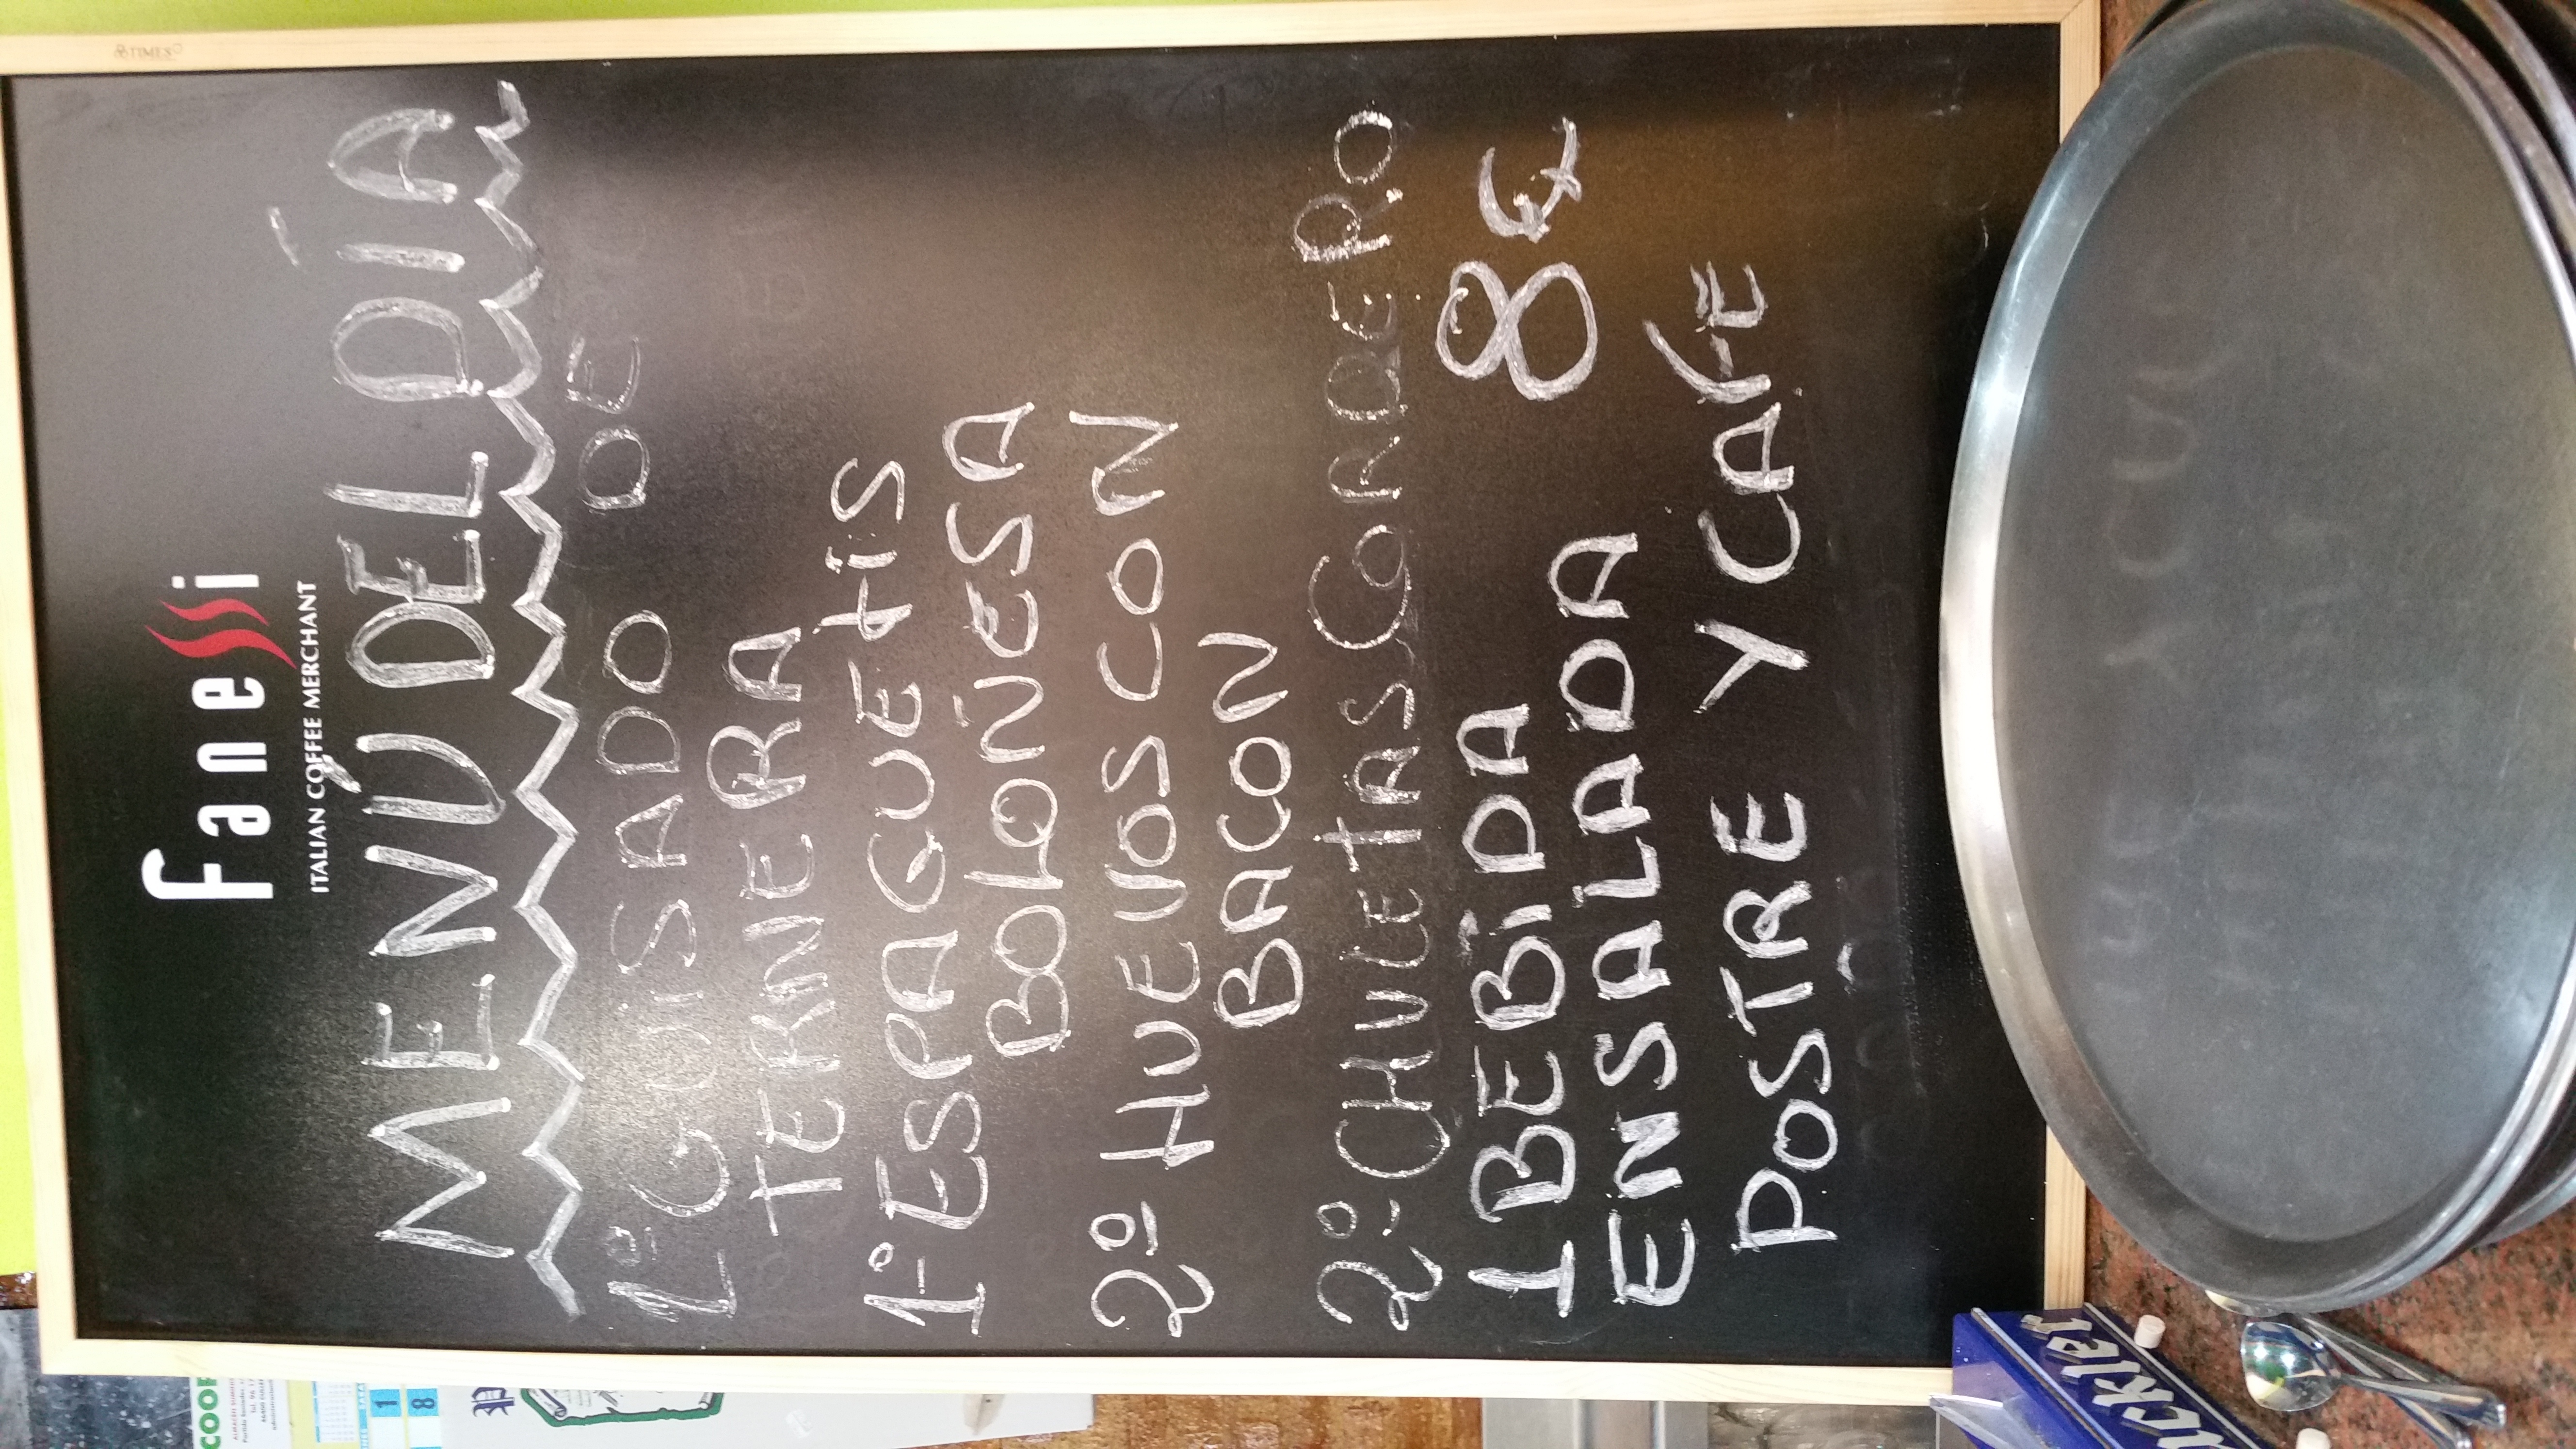 Fanessi
ITALIAN COFFEE MERCHANT
MENÚ DEL DÍA
1º GUISADO DE
TERNERA
1º ESPAGUETIS
BOLOÑESA
2º HUEVOS CON
BACON
2º CHULETAS CORDERO
1 BEBIDA 8€
ENSALADA
POSTRE Y CAFE
TIMES
COOP
1
8